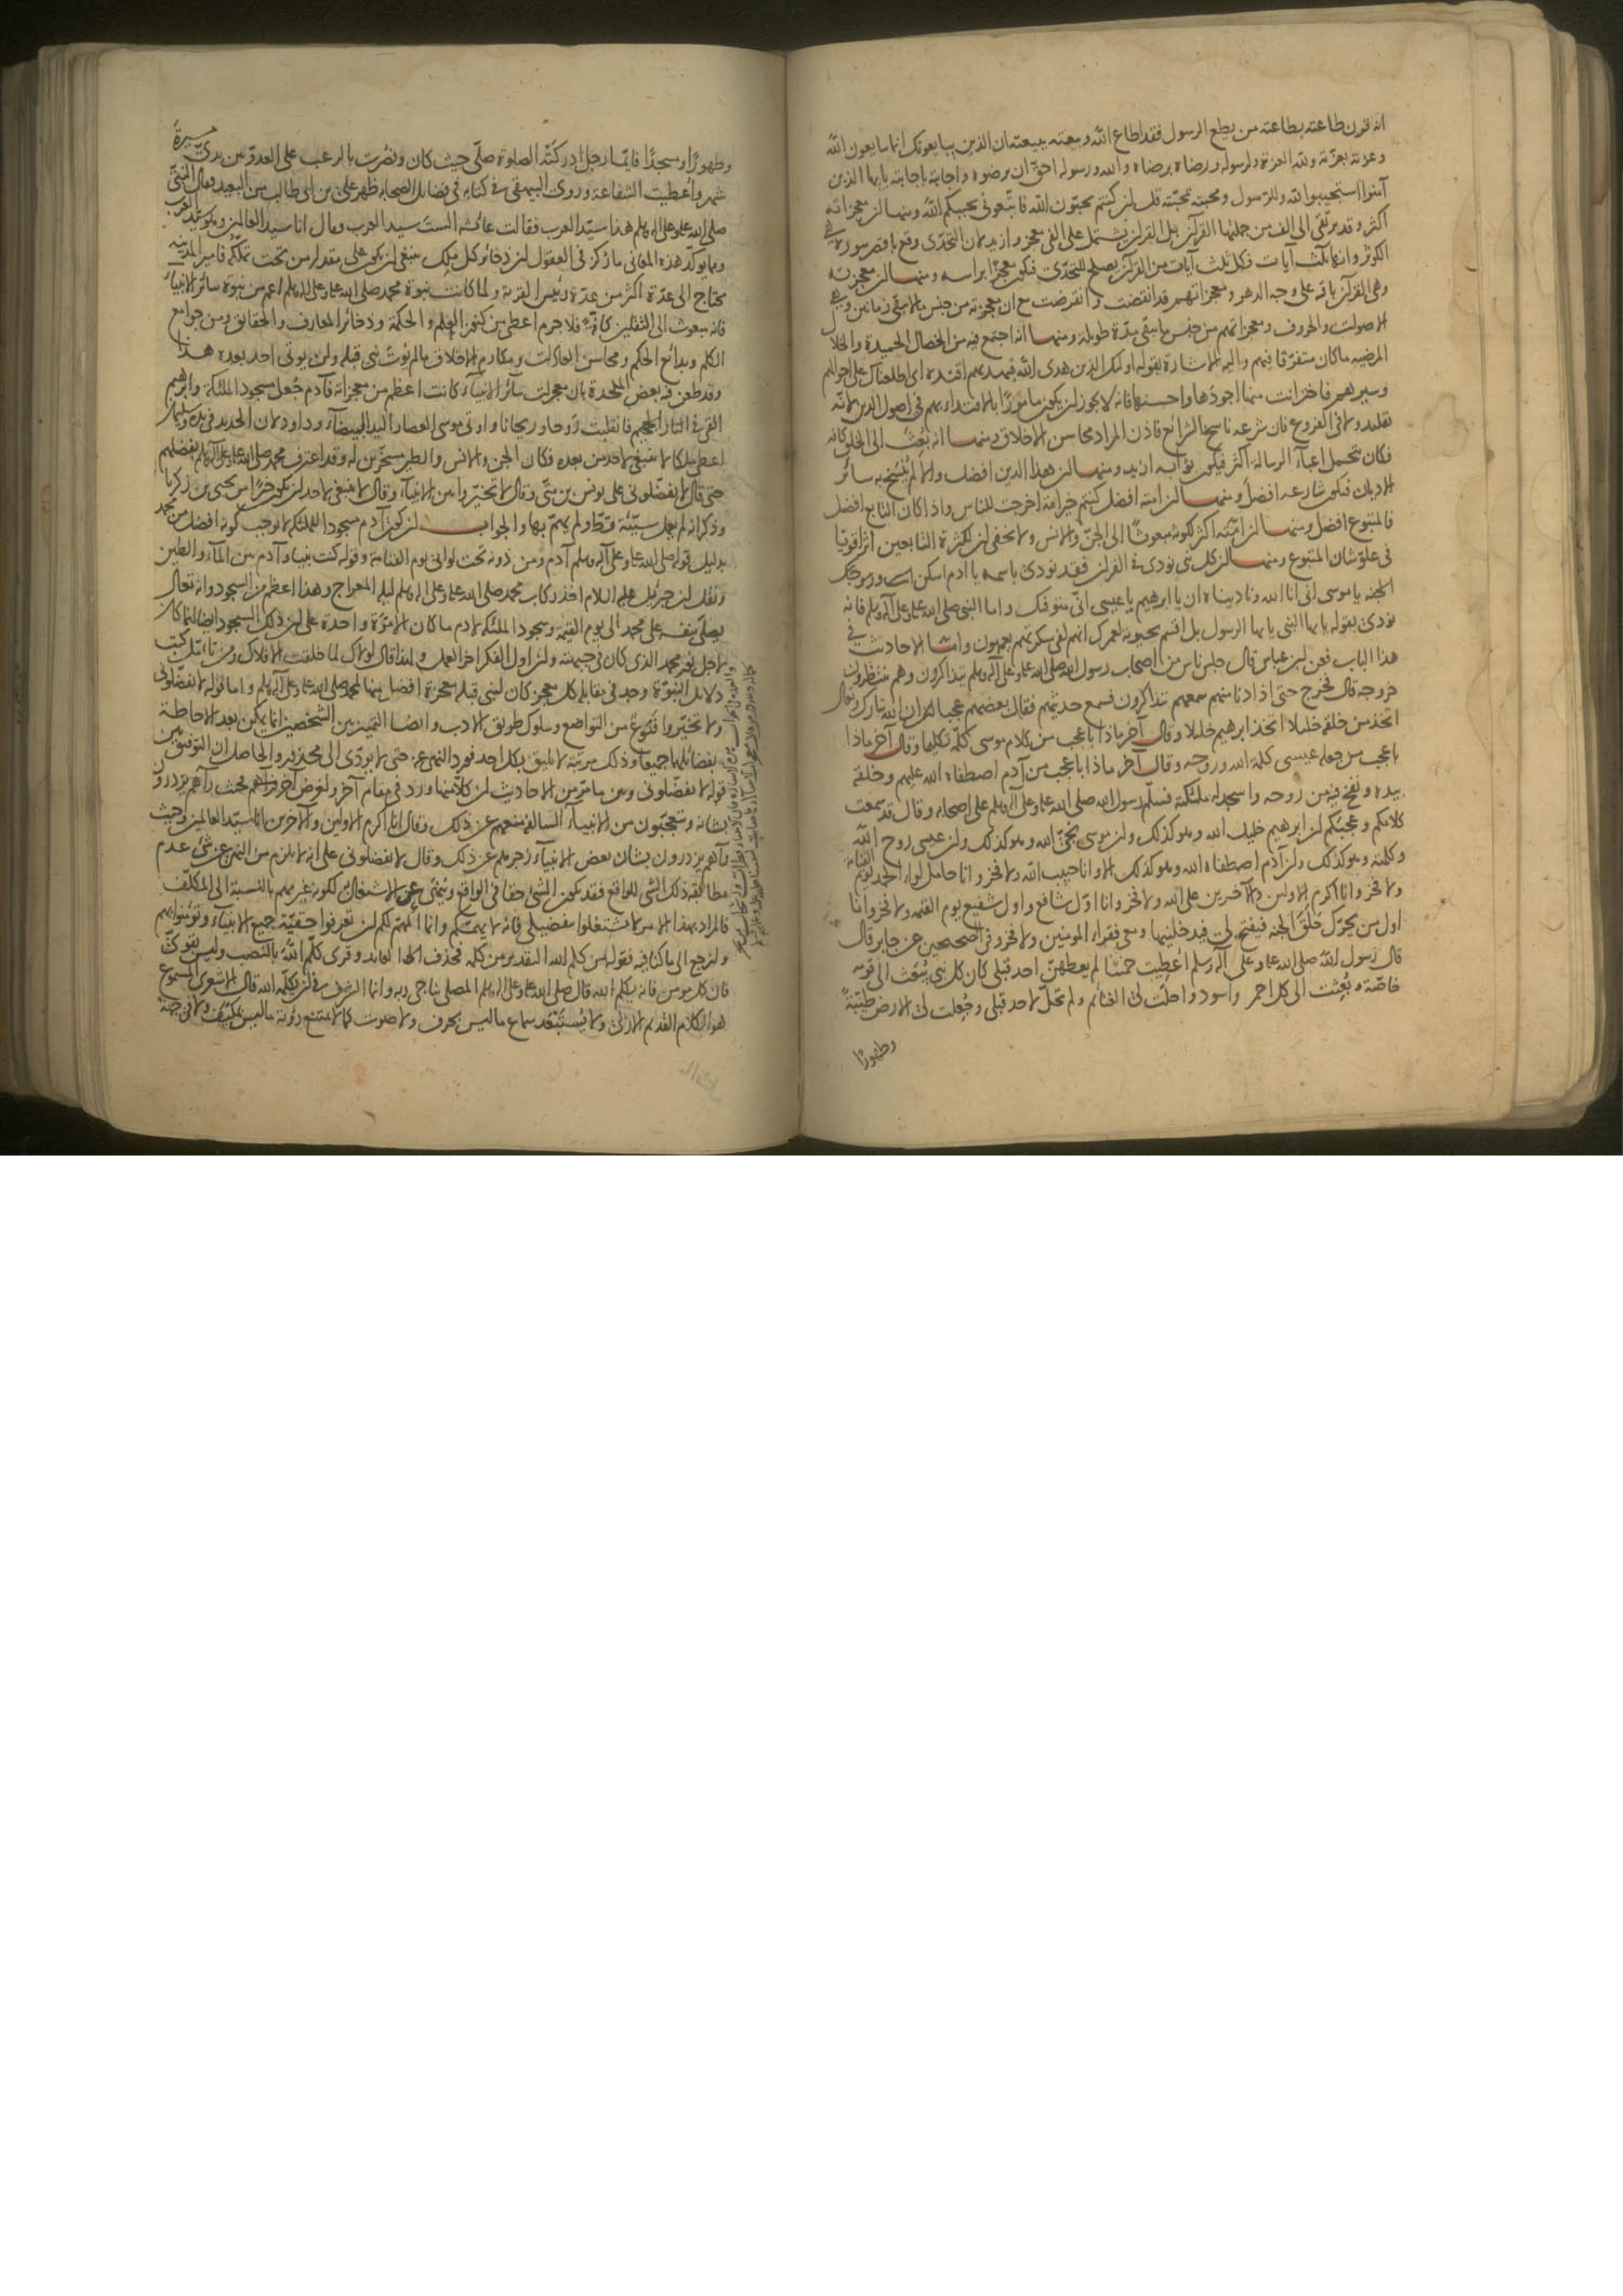 انه قرن طاعته بطاعته من يطع الرسول فقد اطاع الله وبيعته ببيعته ان الذين يبايعونك انما يبايعون الله
وعزته بعزته ولله العزة ولرسوله ورضاه برضاه والله ورسوله احق ان يرضوه واجابته باجابته يا ايها الذين
آمنوا استجيبوا لله وللرسول ومحبته بمحبته قل ان كنتم تحبون الله فاتبعوني يحببكم الله ومنها ان معجزاته
اكثر وقد ترتقى الى الف من جملتها القرآن بل القرآن يشتمل على الفى معجز وازيد لان التحدى وقع باقصر سورة هى
الكوثر وانها ثلث آيات فكل ثلث آيات من القرآن يصلح للتحدى فيكون معجزا براسه ومنها ان معجزته
وهى القرآن باقية على وجه الدهر ومعجزاتهم قد انقضت وانقرضت مع ان معجزته من جنس ما لا يبقى زمانين وهى
الاصوات والحروف ومعجزاتهم من جنس ما يبقى مدة طويلة ومنها انه اجتمع فيه من الخصال الحميدة والخلال
المرضية ما كان متفرقا فيهم واليه الاشارة بقوله اولئك الذين هدى الله فبهديهم اقتده اى اطلعناك على احوالهم
وسيرهم فاختر انت منها اجودها واحسنها فانه لا يجوز ان يكون مامورا بالاقتداء بهم فى اصول الدين لانه
تقليد ولا فى الفروع فان شرعه ناسخ الشرائع فاذن المراد محاسن الاخلاق ومنها انه بعث الى الخلق كافة
فكان تحمل اعباء الرسالة اكثر فيكون ثوابه ازيد ومنها ان هذا الدين افضل والا لم ينسخ به سائر
الاديان فيكون شارعه افضل ومنها ان امته افضل كنتم خير امة اخرجت للناس واذا كان التابع افضل
فالمتبوع افضل ومنها ان امته اكثر لكونه مبعوثا الى الجن والانس ولا يخفى ان لكثرة التابعين اثرا قويا
فى علو شان المتبوع ومنها ان كل نبى نودى فى القرآن فقد نودى باسمه يا آدم اسكن انت وزوجك
الجنة يا موسى انى انا الله وناديناه ان يا ابرهيم يا عيسى انى متوفيك واما النبى صلى الله عليه وعلى آله وسلم فانه
نودى بقوله يا ايها النبى يا ايها الرسول بل اقسم بحيوته لعمرك انهم لفى سكرتهم يعمهون واما الاحاديث فى
هذا الباب فعن ابن عباس قال جلس ناس من اصحاب رسول الله صلى الله عليه وعلى آله وسلم يتذاكرون وهم ينتظرون
خروجه قال فخرج حتى اذا دنا منهم سمعهم يتذاكرون فسمع حديثهم فقال بعضهم عجبا ان الله تبارك وتعالى
اتخذ من خلقه خليلا اتخذ ابرهيم خليلا وقال آخر ماذا باعجب من كلام موسى كلمه تكليما وقال آخر ماذا
باعجب من جعله عيسى كلمة الله وروحه وقال آخر ماذا باعجب من آدم اصطفاه الله عليهم وخلقه
بيده ونفخ فيه من روحه واسجد له ملئكته فسلم رسول الله صلى الله عليه وعلى آله وسلم على اصحابه وقال قد سمعت
كلامكم وعجبكم ان ابرهيم خليل الله وهو كذلك وان موسى نجى الله وهو كذلك وان عيسى روح الله
وكلمته وهو كذلك وان آدم اصطفاه الله وهو كذلك الا وانا حبيب الله ولا فخر وانا حامل لواء الحمد يوم القيامة
ولا فخر وانا اكرم الاولين والآخرين على الله ولا فخر وانا اول شافع واول شفيع يوم القيمة ولا فخر وانا
اول من يحرك حلق الجنة فيفتح لى فيدخلنيها ومعى فقراء المومنين ولا فخر وفى الصحيحين عن جابر قال
قال رسول الله صلى الله عليه وعلى آله وسلم اعطيت خمسا لم يعطهن احد قبلى كان كل نبى يبعث الى قومه
خاصة وبعثت الى كل احمر واسود واحلت لى الغنائم ولم تحل لاحد قبلى وجعلت لى الارض طيبة
وطهورا
وطهورا ومسجدا فايما رجل ادركته الصلوة صلى حيث كان ونصرت بالرعب على العدو بين يدى مسيرة
شهر واعطيت الشفاعة وروى البيهقى فى كتابه فى فضائل الصحابة ظهر على بن ابى طالب من البعيد فقال النبى
صلى الله عليه وعلى آله وسلم هذا سيد العرب فقالت عائشه الست سيد العرب وقال انا سيد العالمين وهو سيد العرب
ومما يؤكد هذه المعانى ما ركز فى العقول ان ذخائر كل ملك ينبغى ان يكون على مقدار من تحت تملكه فامير المدينة
يحتاج الى عدة اكثر من عدة رئيس القرية ولما كانت نبوة محمد صلى الله عليه وعلى آله وسلم اعم من نبوة سائر الانبياء
فانه مبعوث الى الثقلين كافة فلا جرم اعطى من كنوز العلم والحكمة وذخائر المعارف والحقائق ومن جوامع
الكلم وبدائع الحكم ومحاسن العادات ومكارم الاخلاق ما لم يؤت نبى قبله ولن يوتى احد بعده هذا
وقد طعن فيه بعض الملحدة بان معجزات سائر الانبياء كانت اعظم من معجزاته فآدم جعل مسجود الملئكة وابرهيم
القى فى النار فانقلبت روحا وريحانا واوتى موسى العصا واليد البيضاء وداود لان الحديد فى يده وسليمان
اعطى ملكا لا ينبغى لاحد من بعده فكان الجن والانس والطير مسخرين له وقد اعترف محمد صلى الله عليه وعلى آله وسلم بفضلهم
حتى قال لا تفضلونى على يونس بن متى وقال لا تخيروا بين الانبياء وقال لا ينبغى لاحد ان يكون خيرا من يحيى بن زكريا
وذكر انه لم يعمل سيئة قط ولم يهم بها والجواب ان كون آدم مسجودا للملئكة لا يوجب كونه افضل من محمد
بدليل قوله صلى الله عليه وعلى آله وسلم آدم ومن دونه تحت لوائى يوم القيامة وقوله كنت نبيا وآدم بين الماء والطين
ونقل ان جبرئيل عليه السلام اخذ ركاب محمد صلى الله عليه وعلى آله وسلم ليلة المعراج وهذا اعظم من السجود وانه تعالى
يصلى بنفسه على محمد الى يوم القيمة وسجود الملئكة لآدم ما كان الا مرة واحدة على ان ذلك السجود ايضا انما كان
لاجل نور محمد الذى كان فى جبهته وان اول الفكر آخر العمل ولهذا قال لولاك لما خلقت الافلاك ومن تأمل كتب
دلائل النبوة وجد فى مقابلة كل معجز كان لنبى قبله معجزة افضل منها لمحمد صلى الله عليه وعلى آله وسلم واما قوله لا تفضلونى
ولا تخيروا فنوع من التواضع وسلوك طريق الادب وايضا التمييز بين الشخصين انما يمكن بعد الاحاطة
بفضائلهما جميعا وذلك مرتبة لا يليق بكل احد فورد النهى عنه حتى لا يودى الى محذور والحاصل ان التوفيق بين
قوله لا تفضلونى وبين ما مر من الاحاديث ان كلا منها ورد فى مقام آخر ولغرض آخر فحيث رآهم يزدرون
بشانه ويتعجبون من الانبياء السالفة منعهم عن ذلك وقال انا اكرم الاولين والآخرين انا سيد العالمين وحيث
رآهم يزدرون بشان بعض الانبياء زجرهم عن ذلك وقال لا تفضلونى على انه لا يلزم من النهى عن شئ عدم
مطابقة ذلك الشئ للواقع فقد يكون الشئ حقا فى الواقع وينهى عن الاشتغال به لكونه غير مهم بالنسبة الى المكلف
فالمراد بهذا الامر لا تشتغلوا بتفضيلى فانه لا يهمكم وانما المهم لكم ان تعرفوا حقية جميع الانبياء وتؤمنوا بهم
ولنرجع الى ما كنا فيه فقوله من كلم الله التقدير من كلمه فحذف العائد وقرئ كلم الله بالنصب وليس بقوى
فان كل مومن فانه يكلم الله قال صلى الله عليه وعلى آله وسلم المصلى يناجى ربه وانما الشرف فى ان يكلمه الله قال الاشعرى المسموع
هو الكلام القديم الازلى ولا يستبعد سماع ما ليس بحرف ولا صوت كما لا يمتنع رؤية ما ليس بمكيف ولا فى جهة